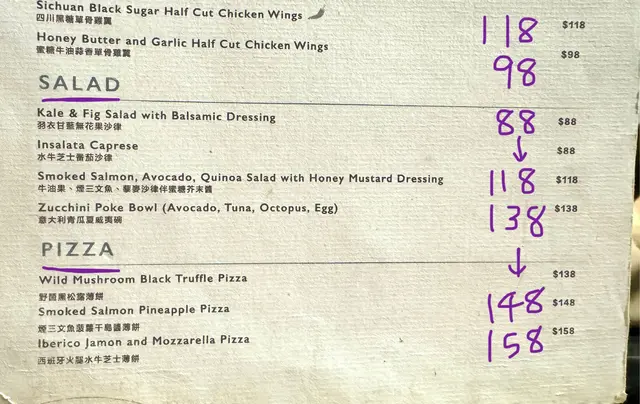 Sichuan Black Sugar Half Cut Chicken Wings 118 $118
四川黑糖單骨雞翼
Honey Butter and Garlic Half Cut Chicken Wings 98 $98
蜜糖牛油蒜香單骨雞翼
SALAD
Kale & Fig Salad with Balsamic Dressing 88 $88
羽衣甘藍無花果沙律
Insalata Caprese ↓ $88
水牛芝士番茄沙律
Smoked Salmon, Avocado, Quinoa Salad with Honey Mustard Dressing 118 $118
牛油果、煙三文魚、藜麥沙律伴蜜糖芥末醬
Zucchini Poke Bowl (Avocado, Tuna, Octopus, Egg) 138 $138
意大利青瓜夏威夷碗
PIZZA
Wild Mushroom Black Truffle Pizza ↓ $138
野菌黑松露薄餅
Smoked Salmon Pineapple Pizza 148 $148
煙三文魚菠蘿千島醬薄餅
Iberico Jamon and Mozzarella Pizza 158 $158
西班牙火腿水牛芝士薄餅